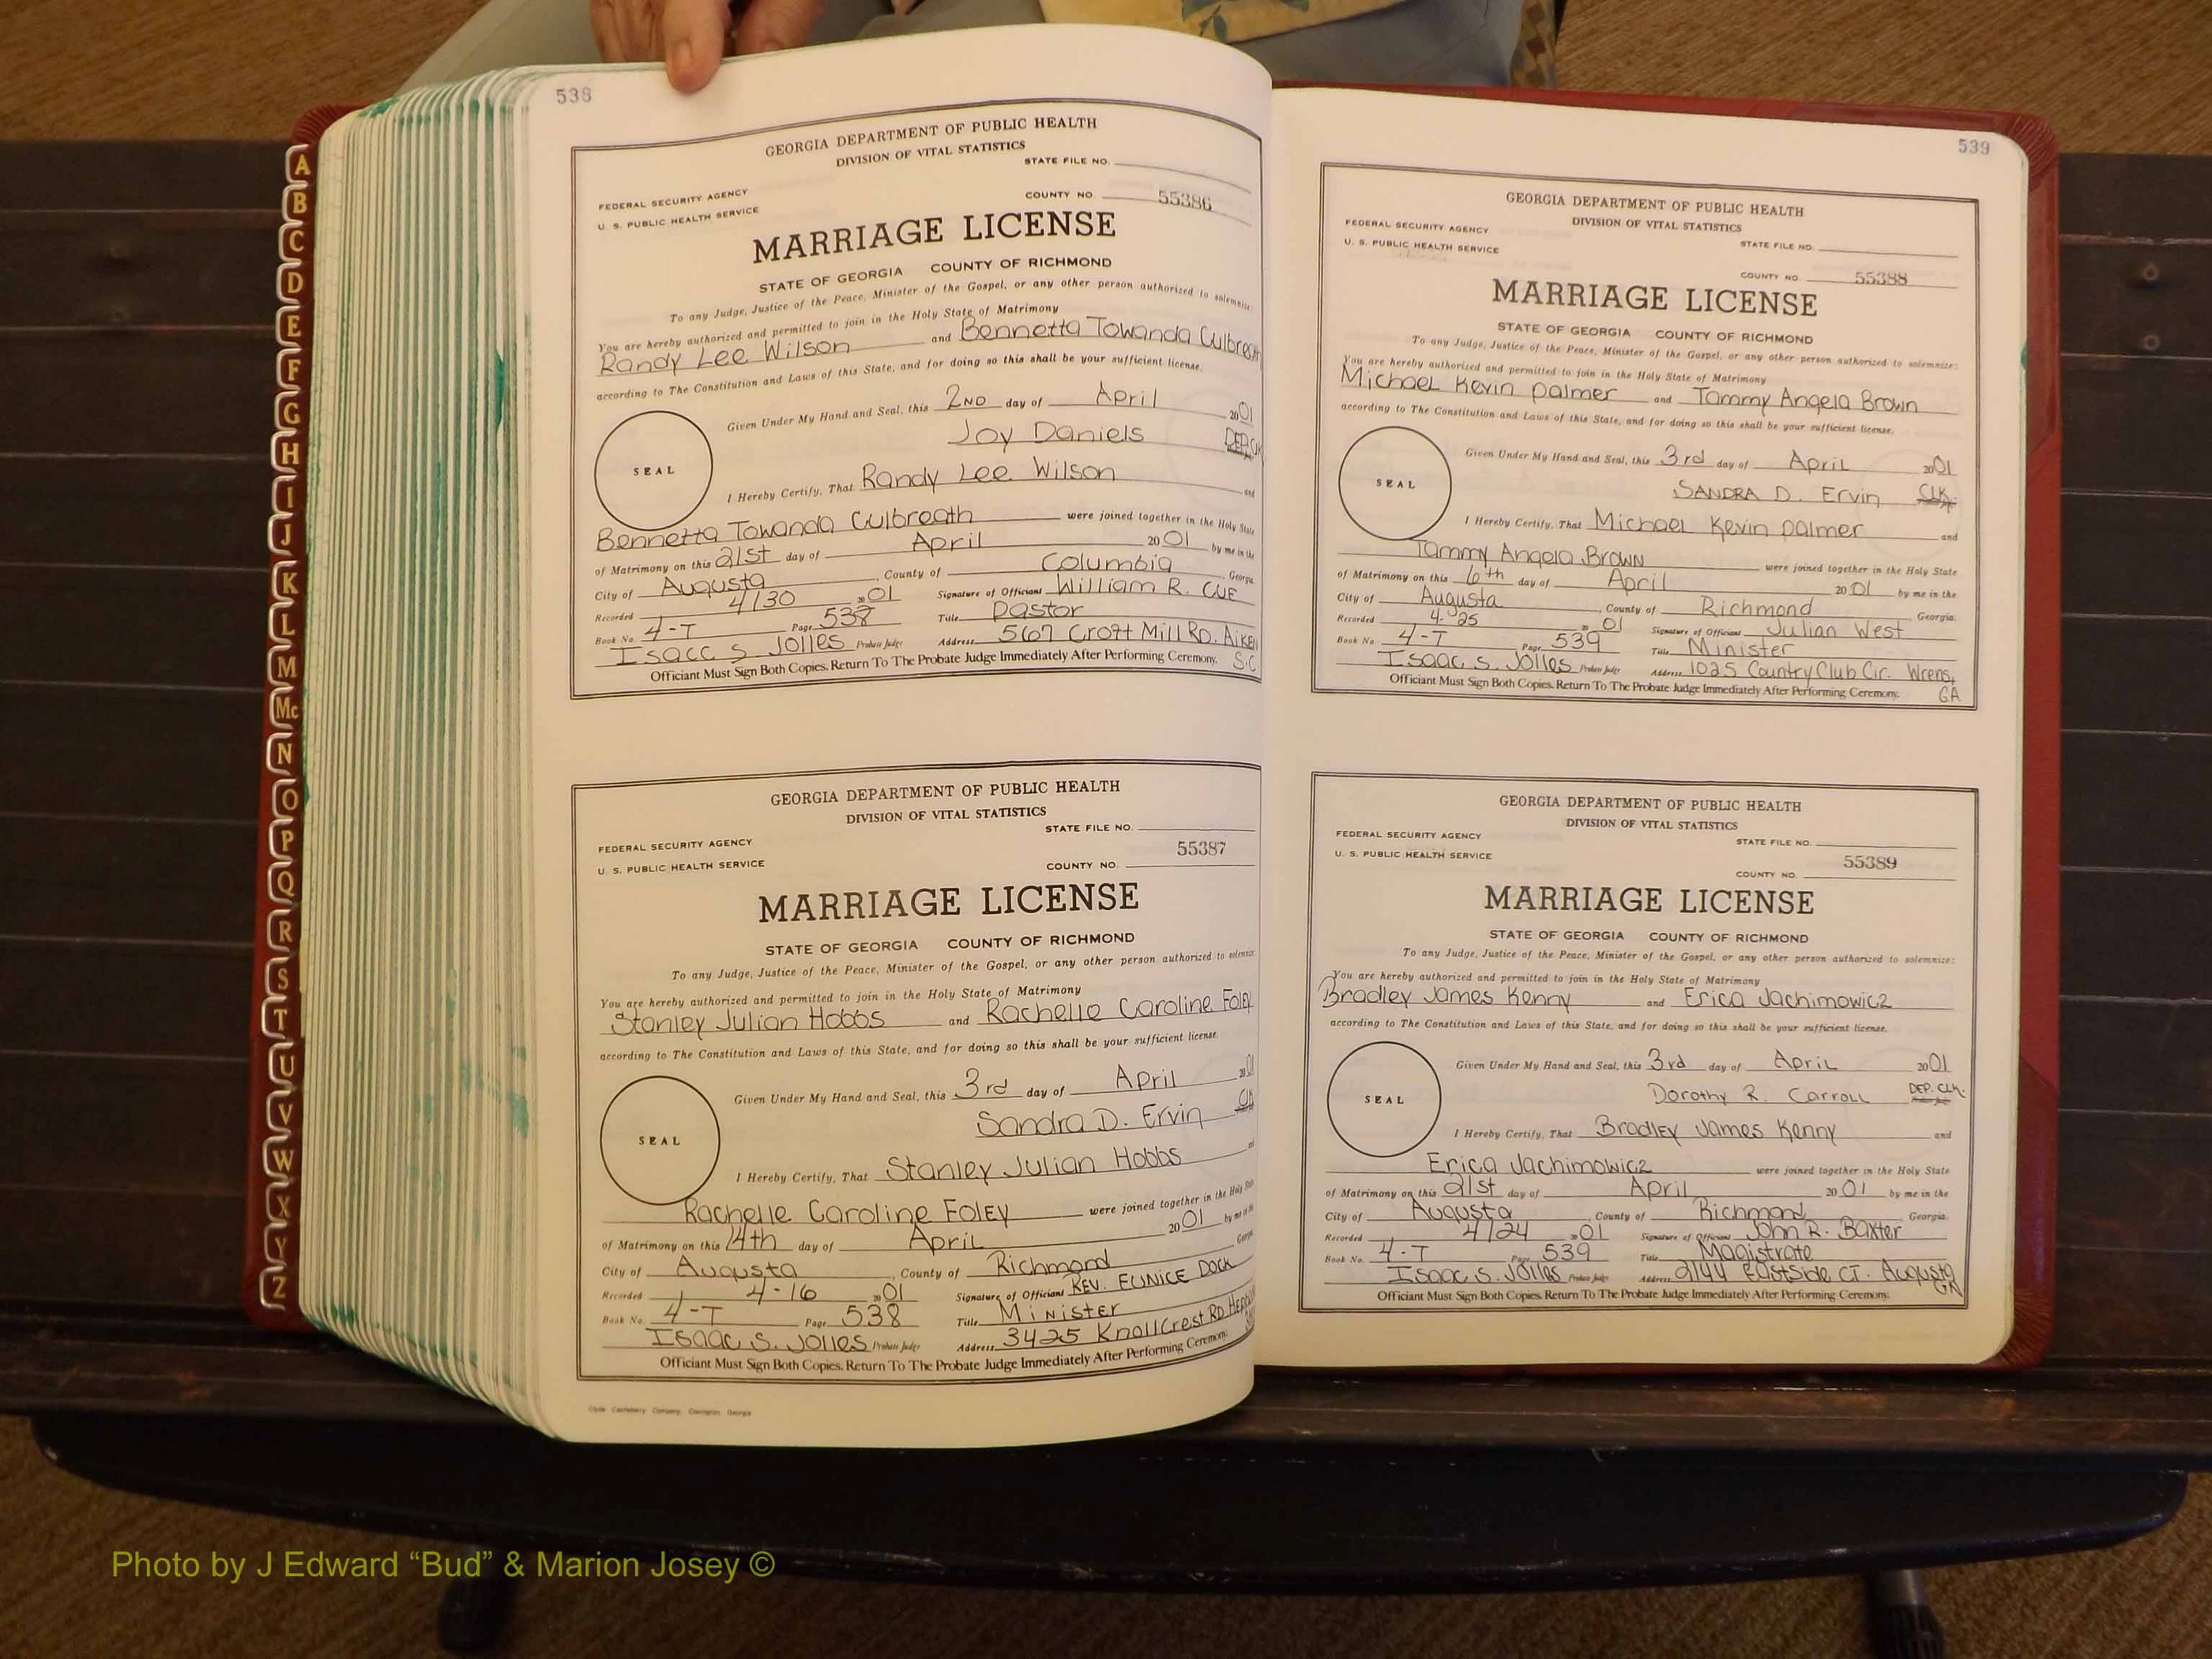 A
B
C
D
E
F
G
H
I
J
K
L
M
Mc
N
O
P
Q
R
S
T
U
V
W
X
Y
Z
538
GEORGIA DEPARTMENT OF PUBLIC HEALTH
DIVISION OF VITAL STATISTICS
STATE FILE NO.
FEDERAL SECURITY AGENCY
U. S. PUBLIC HEALTH SERVICE
COUNTY NO. 55386
MARRIAGE LICENSE
STATE OF GEORGIA COUNTY OF RICHMOND
To any Judge, Justice of the Peace, Minister of the Gospel, or any other person authorized to solemnize:
You are hereby authorized and permitted to join in the Holy State of Matrimony
Randy Lee Wilson and Bennetta Towanda Culbreath
according to The Constitution and Laws of this State, and for doing so this shall be your sufficient license.
Given Under My Hand and Seal, this 2ND day of April 2001
Joy Daniels DEP. Clk
SEAL
I Hereby Certify, That Randy Lee Wilson and
Bennetta Towanda Culbreath were joined together in the Holy State
of Matrimony on this 21st day of April 2001 by me in the
City of Augusta, County of Columbia, Georgia
Recorded 4/30 2001 Signature of Officiant William R. CUE
Book No. 4-T Page 538 Title Pastor
Isacc S Jolles Probate Judge Address 567 Croft Mill RD. Aiken S.C.
Officiant Must Sign Both Copies. Return To The Probate Judge Immediately After Performing Ceremony.
GEORGIA DEPARTMENT OF PUBLIC HEALTH
DIVISION OF VITAL STATISTICS
STATE FILE NO.
FEDERAL SECURITY AGENCY
U. S. PUBLIC HEALTH SERVICE
COUNTY NO. 55387
MARRIAGE LICENSE
STATE OF GEORGIA COUNTY OF RICHMOND
To any Judge, Justice of the Peace, Minister of the Gospel, or any other person authorized to solemnize:
You are hereby authorized and permitted to join in the Holy State of Matrimony
Stanley Julian Hobbs and Rachelle Caroline Foley
according to The Constitution and Laws of this State, and for doing so this shall be your sufficient license.
Given Under My Hand and Seal, this 3rd day of April 2001
Sandra D. Ervin Clk
SEAL
I Hereby Certify, That Stanley Julian Hobbs and
Rachelle Caroline Foley were joined together in the Holy State
of Matrimony on this 14th day of April 2001 by me in the
City of Augusta, County of Richmond Georgia
Recorded 4-16 2001 Signature of Officiant REV. EUNICE DOCK
Book No. 4-T Page 538 Title Minister
Isaac S. Jolles Probate Judge Address 3425 KnollCrest RD
Officiant Must Sign Both Copies. Return To The Probate Judge Immediately After Performing Ceremony.
Clyde Castleberry Company, Covington, Georgia
539
GEORGIA DEPARTMENT OF PUBLIC HEALTH
DIVISION OF VITAL STATISTICS
FEDERAL SECURITY AGENCY
U. S. PUBLIC HEALTH SERVICE
STATE FILE NO.
COUNTY NO. 55388
MARRIAGE LICENSE
STATE OF GEORGIA COUNTY OF RICHMOND
To any Judge, Justice of the Peace, Minister of the Gospel, or any other person authorized to solemnize:
You are hereby authorized and permitted to join in the Holy State of Matrimony
Michael Kevin Palmer and Tammy Angela Brown
according to The Constitution and Laws of this State, and for doing so this shall be your sufficient license.
Given Under My Hand and Seal, this 3rd day of April 2001
SANDRA D. Ervin CLK.
SEAL
I Hereby Certify, That Michael Kevin Palmer and
Tammy Angela Brown were joined together in the Holy State
of Matrimony on this 6th day of April 2001 by me in the
City of Augusta, County of Richmond Georgia.
Recorded 4-25 2001 Signature of Officiant Julian West
Book No. 4-T Page 539 Title Minister
Isaac S. Jolles Probate Judge Address 1025 Country Club Cir. Wrens, GA
Officiant Must Sign Both Copies. Return To The Probate Judge Immediately After Performing Ceremony.
GEORGIA DEPARTMENT OF PUBLIC HEALTH
DIVISION OF VITAL STATISTICS
FEDERAL SECURITY AGENCY
U. S. PUBLIC HEALTH SERVICE
STATE FILE NO.
COUNTY NO. 55389
MARRIAGE LICENSE
STATE OF GEORGIA COUNTY OF RICHMOND
To any Judge, Justice of the Peace, Minister of the Gospel, or any other person authorized to solemnize:
You are hereby authorized and permitted to join in the Holy State of Matrimony
Bradley James Kenny and Erica Jachimowicz
according to The Constitution and Laws of this State, and for doing so this shall be your sufficient license.
Given Under My Hand and Seal, this 3rd day of April 2001
Dorothy R. Carroll DEP. CLK.
SEAL
I Hereby Certify, That Bradley James Kenny and
Erica Jachimowicz were joined together in the Holy State
of Matrimony on this 21st day of April 2001 by me in the
City of Augusta, County of Richmond Georgia.
Recorded 4/24 2001 Signature of Officiant John R. Baxter
Book No. 4-T Page 539 Title Magistrate
Isaac S. Jolles Probate Judge Address 2144 Eastside CT. Augusta GA
Officiant Must Sign Both Copies. Return To The Probate Judge Immediately After Performing Ceremony.
Photo by J Edward “Bud” & Marion Josey ©